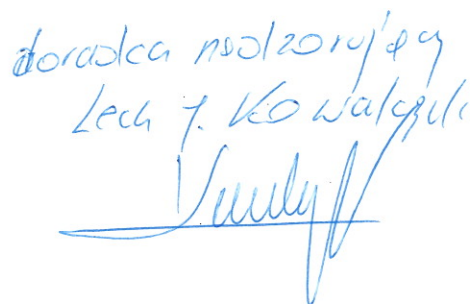 doradca nadzorujący
Lech J. Kowalczyk